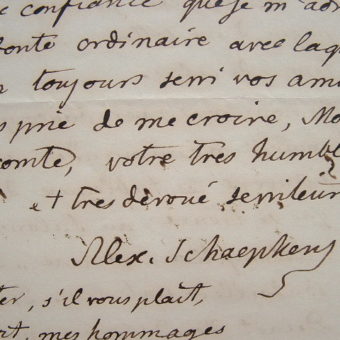 confiance que je m'
ordinaire avec
toujours servi vos
prie de me croire, Mo
comte, votre très humbl
et très dévoué serviteur
Alex. Schaepkens
s'il vous plaît,
mes hommages